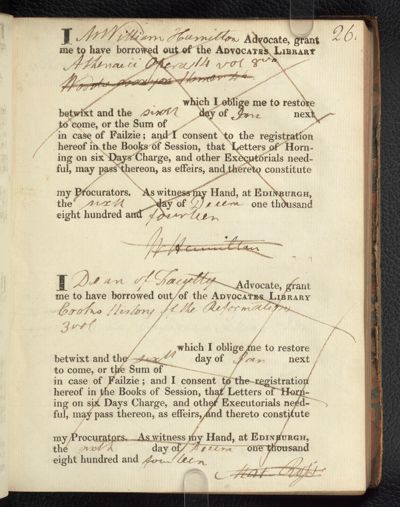 26.
I Mr William Hamilton Advocate, grant
me to have borrowed out of the ADVOCATES LIBRARY
Athenaei Opera 14 vol 8vo
which I oblige me to restore
betwixt and the sixth day of Jan next
to come, or the Sum of
in case of Failzie; and I consent to the registration
hereof in the Books of Session, that Letters of Horn-
ing on six Days Charge, and other Executorials need-
ful, may pass thereon, as effeirs, and thereto constitute
my Procurators. As witness my Hand, at EDINBURGH,
the sixth day of Decem one thousand
eight hundred and fourteen
W Hamilton
I Dean of Faculty Advocate, grant
me to have borrowed out of the ADVOCATES LIBRARY
History of the Reformation
3 vol
which I oblige me to restore
betwixt and the sixth day of Jan next
to come, or the Sum of
in case of Failzie; and I consent to the registration
hereof in the Books of Session, that Letters of Horn-
ing on six Days Charge, and other Executorials need-
ful, may pass thereon, as effeirs, and thereto constitute
my Procurators. As witness my Hand, at EDINBURGH,
the sixth day of Decem one thousand
eight hundred and fourteen
Ross